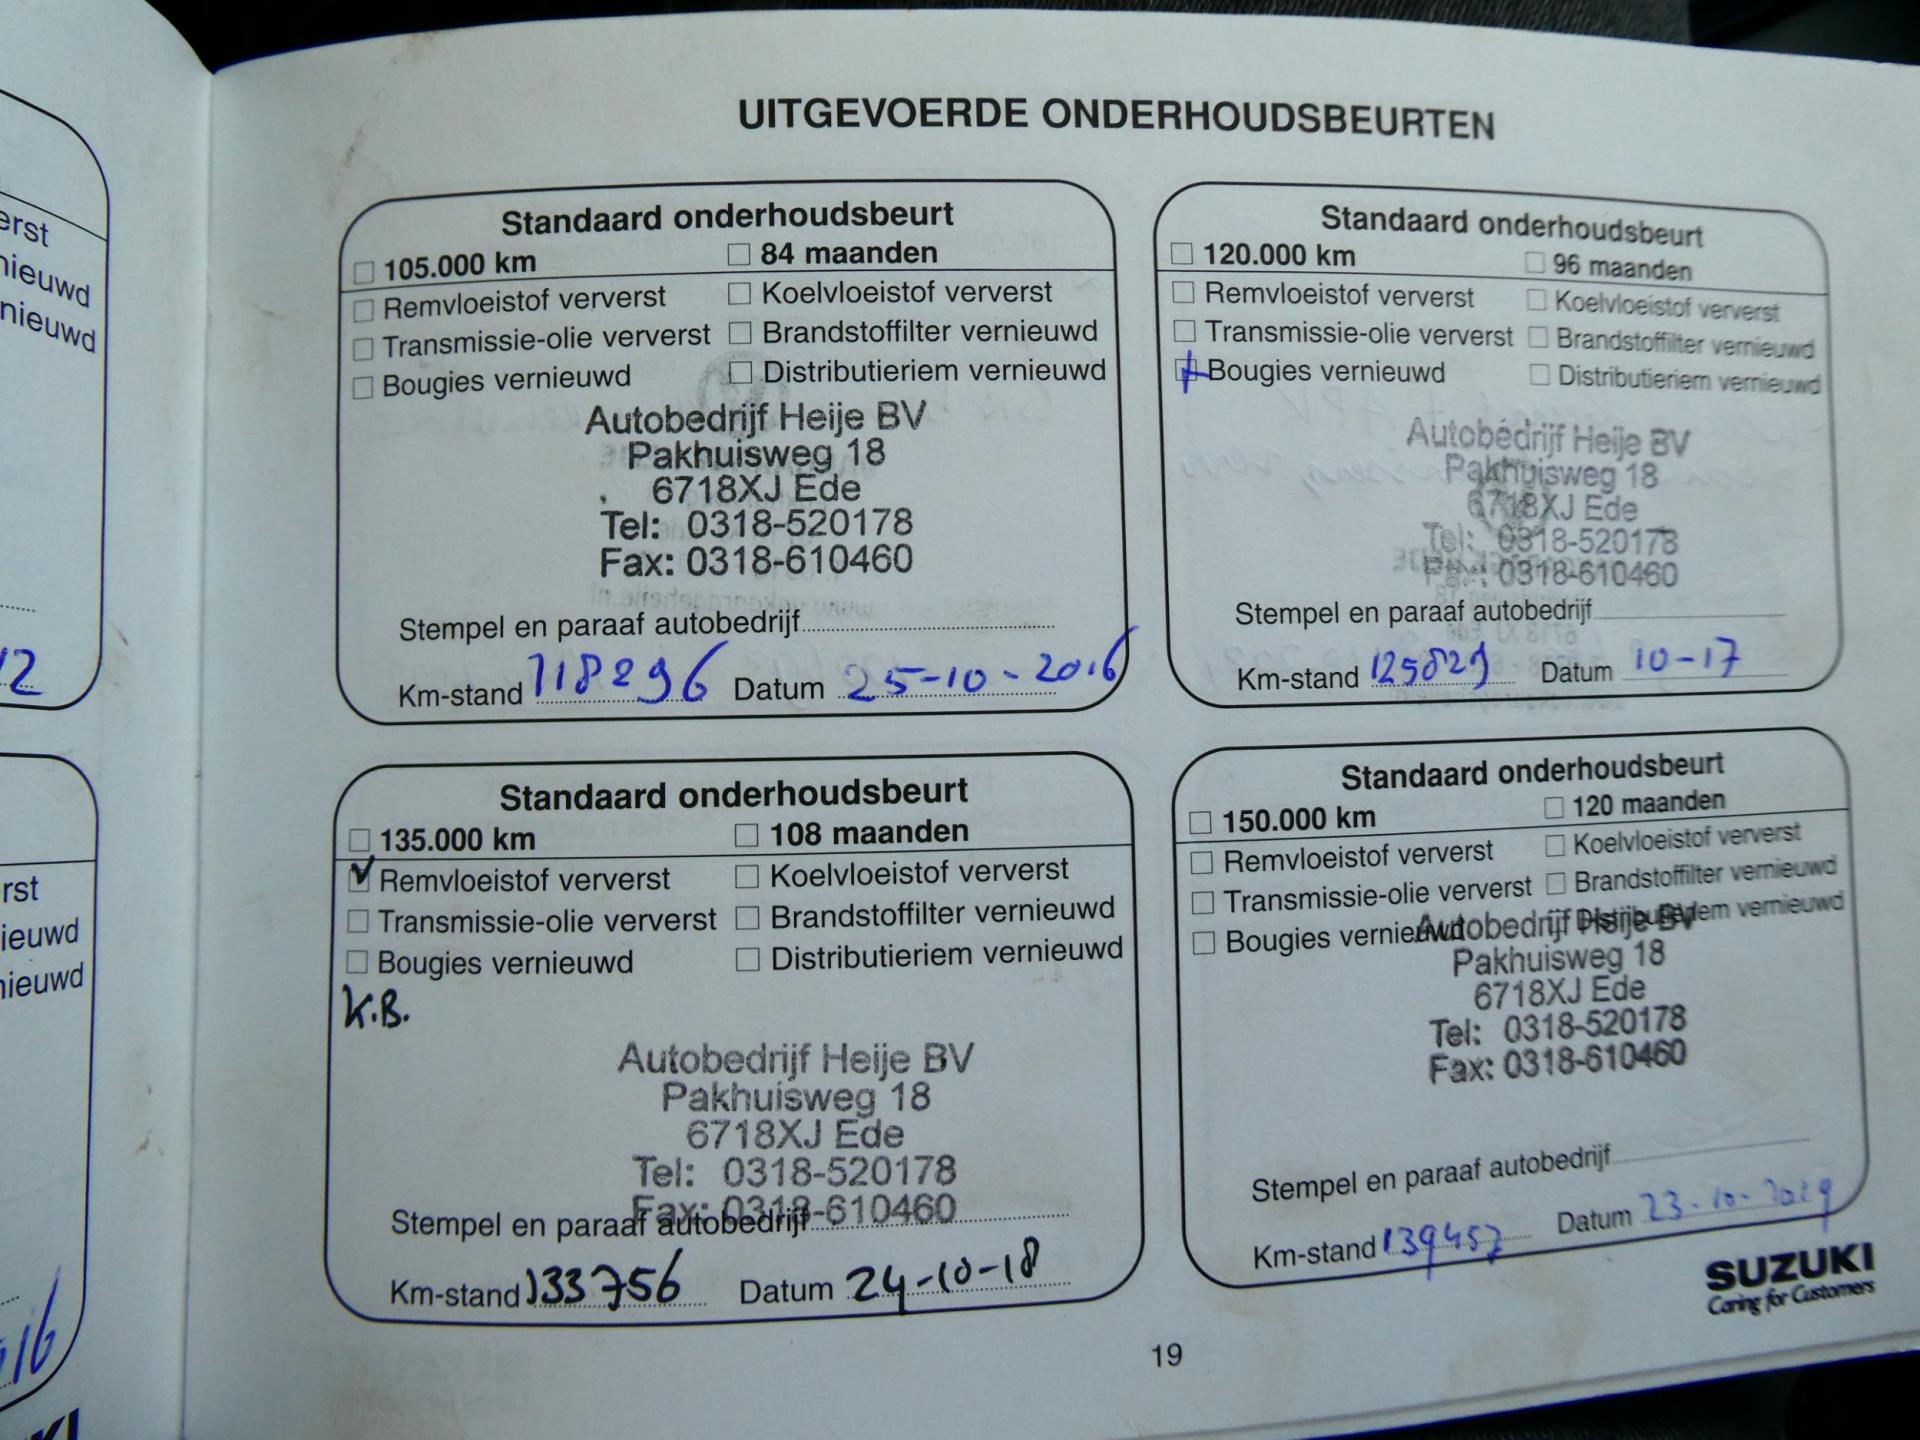 UITGEVOERDE ONDERHOUDSBEURTEN
Standaard onderhoudsbeurt
105.000 km 84 maanden
Remvloeistof ververst Koelvloeistof ververst
Transmissie-olie ververst Brandstoffilter vernieuwd
Bougies vernieuwd Distributieriem vernieuwd
Autobedrijf Heije BV
Pakhuisweg 18
6718XJ Ede
Tel: 0318-520178
Fax: 0318-610460
Stempel en paraaf autobedrijf
Km-stand 118296 Datum 25-10-2016
Standaard onderhoudsbeurt
120.000 km 96 maanden
Remvloeistof ververst Koelvloeistof ververst
Transmissie-olie ververst Brandstoffilter vernieuwd
Bougies vernieuwd Distributieriem vernieuwd
Autobedrijf Heije BV
Pakhuisweg 18
6718XJ Ede
Tel: 0318-520178
Fax: 0318-610460
Stempel en paraaf autobedrijf
Km-stand 125829 Datum 10-17
Standaard onderhoudsbeurt
135.000 km 108 maanden
Remvloeistof ververst Koelvloeistof ververst
Transmissie-olie ververst Brandstoffilter vernieuwd
Bougies vernieuwd Distributieriem vernieuwd
K.B.
Autobedrijf Heije BV
Pakhuisweg 18
6718XJ Ede
Tel: 0318-520178
Fax: 0318-610460
Stempel en paraaf autobedrijf
Km-stand 133756 Datum 24-10-18
Standaard onderhoudsbeurt
150.000 km 120 maanden
Remvloeistof ververst Koelvloeistof ververst
Transmissie-olie ververst Brandstoffilter vernieuwd
Bougies vernieuwd Distributieriem vernieuwd
Autobedrijf Heije BV
Pakhuisweg 18
6718XJ Ede
Tel: 0318-520178
Fax: 0318-610460
Stempel en paraaf autobedrijf
Km-stand 139457 Datum 23-10-2019
SUZUKI
Caring for Customers
19